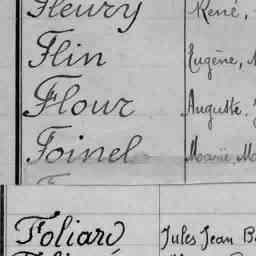 Fleury René,
Flin Eugène,
Flour Auguste.
Foinel Marie,
Foliard Jules Jean